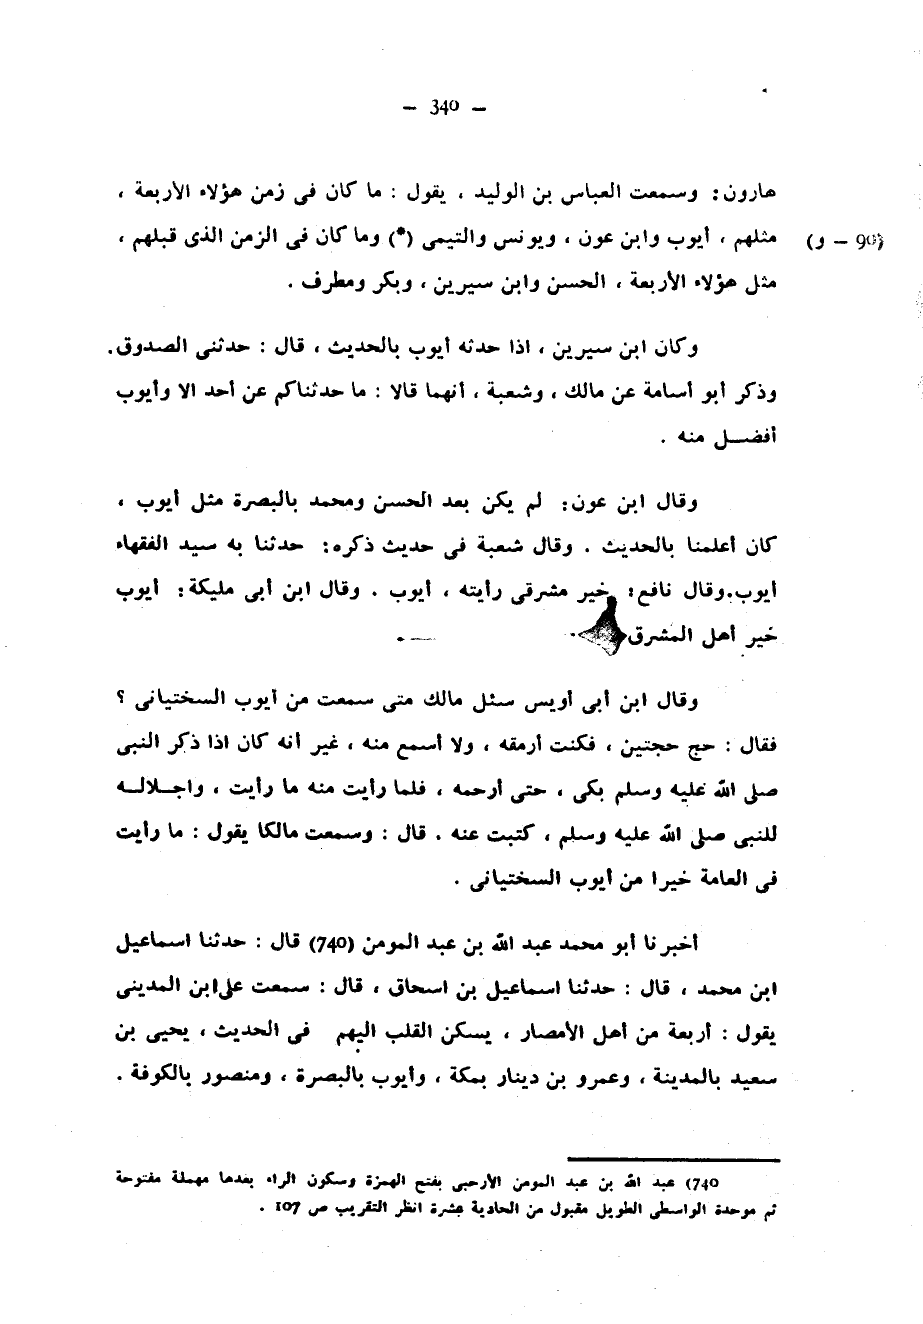 — 340 —
هارون: وسمعت العباس بن الوليد ، يقول : ما كان فى زمن هؤلاء الأربعة ،
(90 – و) مثلهم ، أيوب وابن عون ، ويونس والتيمى (*) وما كان فى الزمن الذى قبلهم ،
مثل هؤلاء الأربعة ، الحسن وابن سيرين ، وبكر ومطرف .
وكان ابن سيرين ، اذا حدثه أيوب بالحديث ، قال : حدثنى الصدوق.
وذكر أبو أسامة عن مالك ، وشعبة ، أنهما قالا : ما حدثناكم عن أحد الا وأيوب
أفضل منه .
وقال ابن عون: لم يكن بعد الحسن ومحمد بالبصرة مثل أيوب ،
كان أعلمنا بالحديث . وقال شعبة فى حديث ذكره: حدثنا به سيد الفقهاء
أيوب.وقال نافع: خير مشرقى رأيته ، أيوب . وقال ابن أبى مليكة: أيوب
خير أهل المشرق .
وقال ابن أبى أويس سئل مالك متى سمعت من أيوب السختيانى ؟
فقال : حج حجتين ، فكنت أرمقه ، ولا أسمع منه ، غير أنه كان اذا ذكر النبى
صلى الله عليه وسلم بكى ، حتى أرحمه ، فلما رأيت منه ما رأيت ، واجلاله
للنبى صلى الله عليه وسلم ، كتبت عنه . قال : وسمعت مالكا يقول : ما رأيت
فى العامة خيرا من أيوب السختيانى .
أخبرنا أبو محمد عبد الله بن عبد المومن (740) قال : حدثنا اسماعيل
ابن محمد ، قال : حدثنا اسماعيل بن اسحاق ، قال : سمعت على ابن المدينى
يقول : أربعة من أهل الأمصار ، يسكن القلب اليهم فى الحديث ، يحيى بن
سعيد بالمدينة ، وعمرو بن دينار بمكة ، وأيوب بالبصرة ، ومنصور بالكوفة .
740) عبد الله بن عبد المومن الأرحبى بفتح الهمزة وسكون الراء بعدها مهملة مفتوحة
ثم موحدة الواسطى الطويل مقبول من الحادية عشرة انظر التقريب ص 107 .